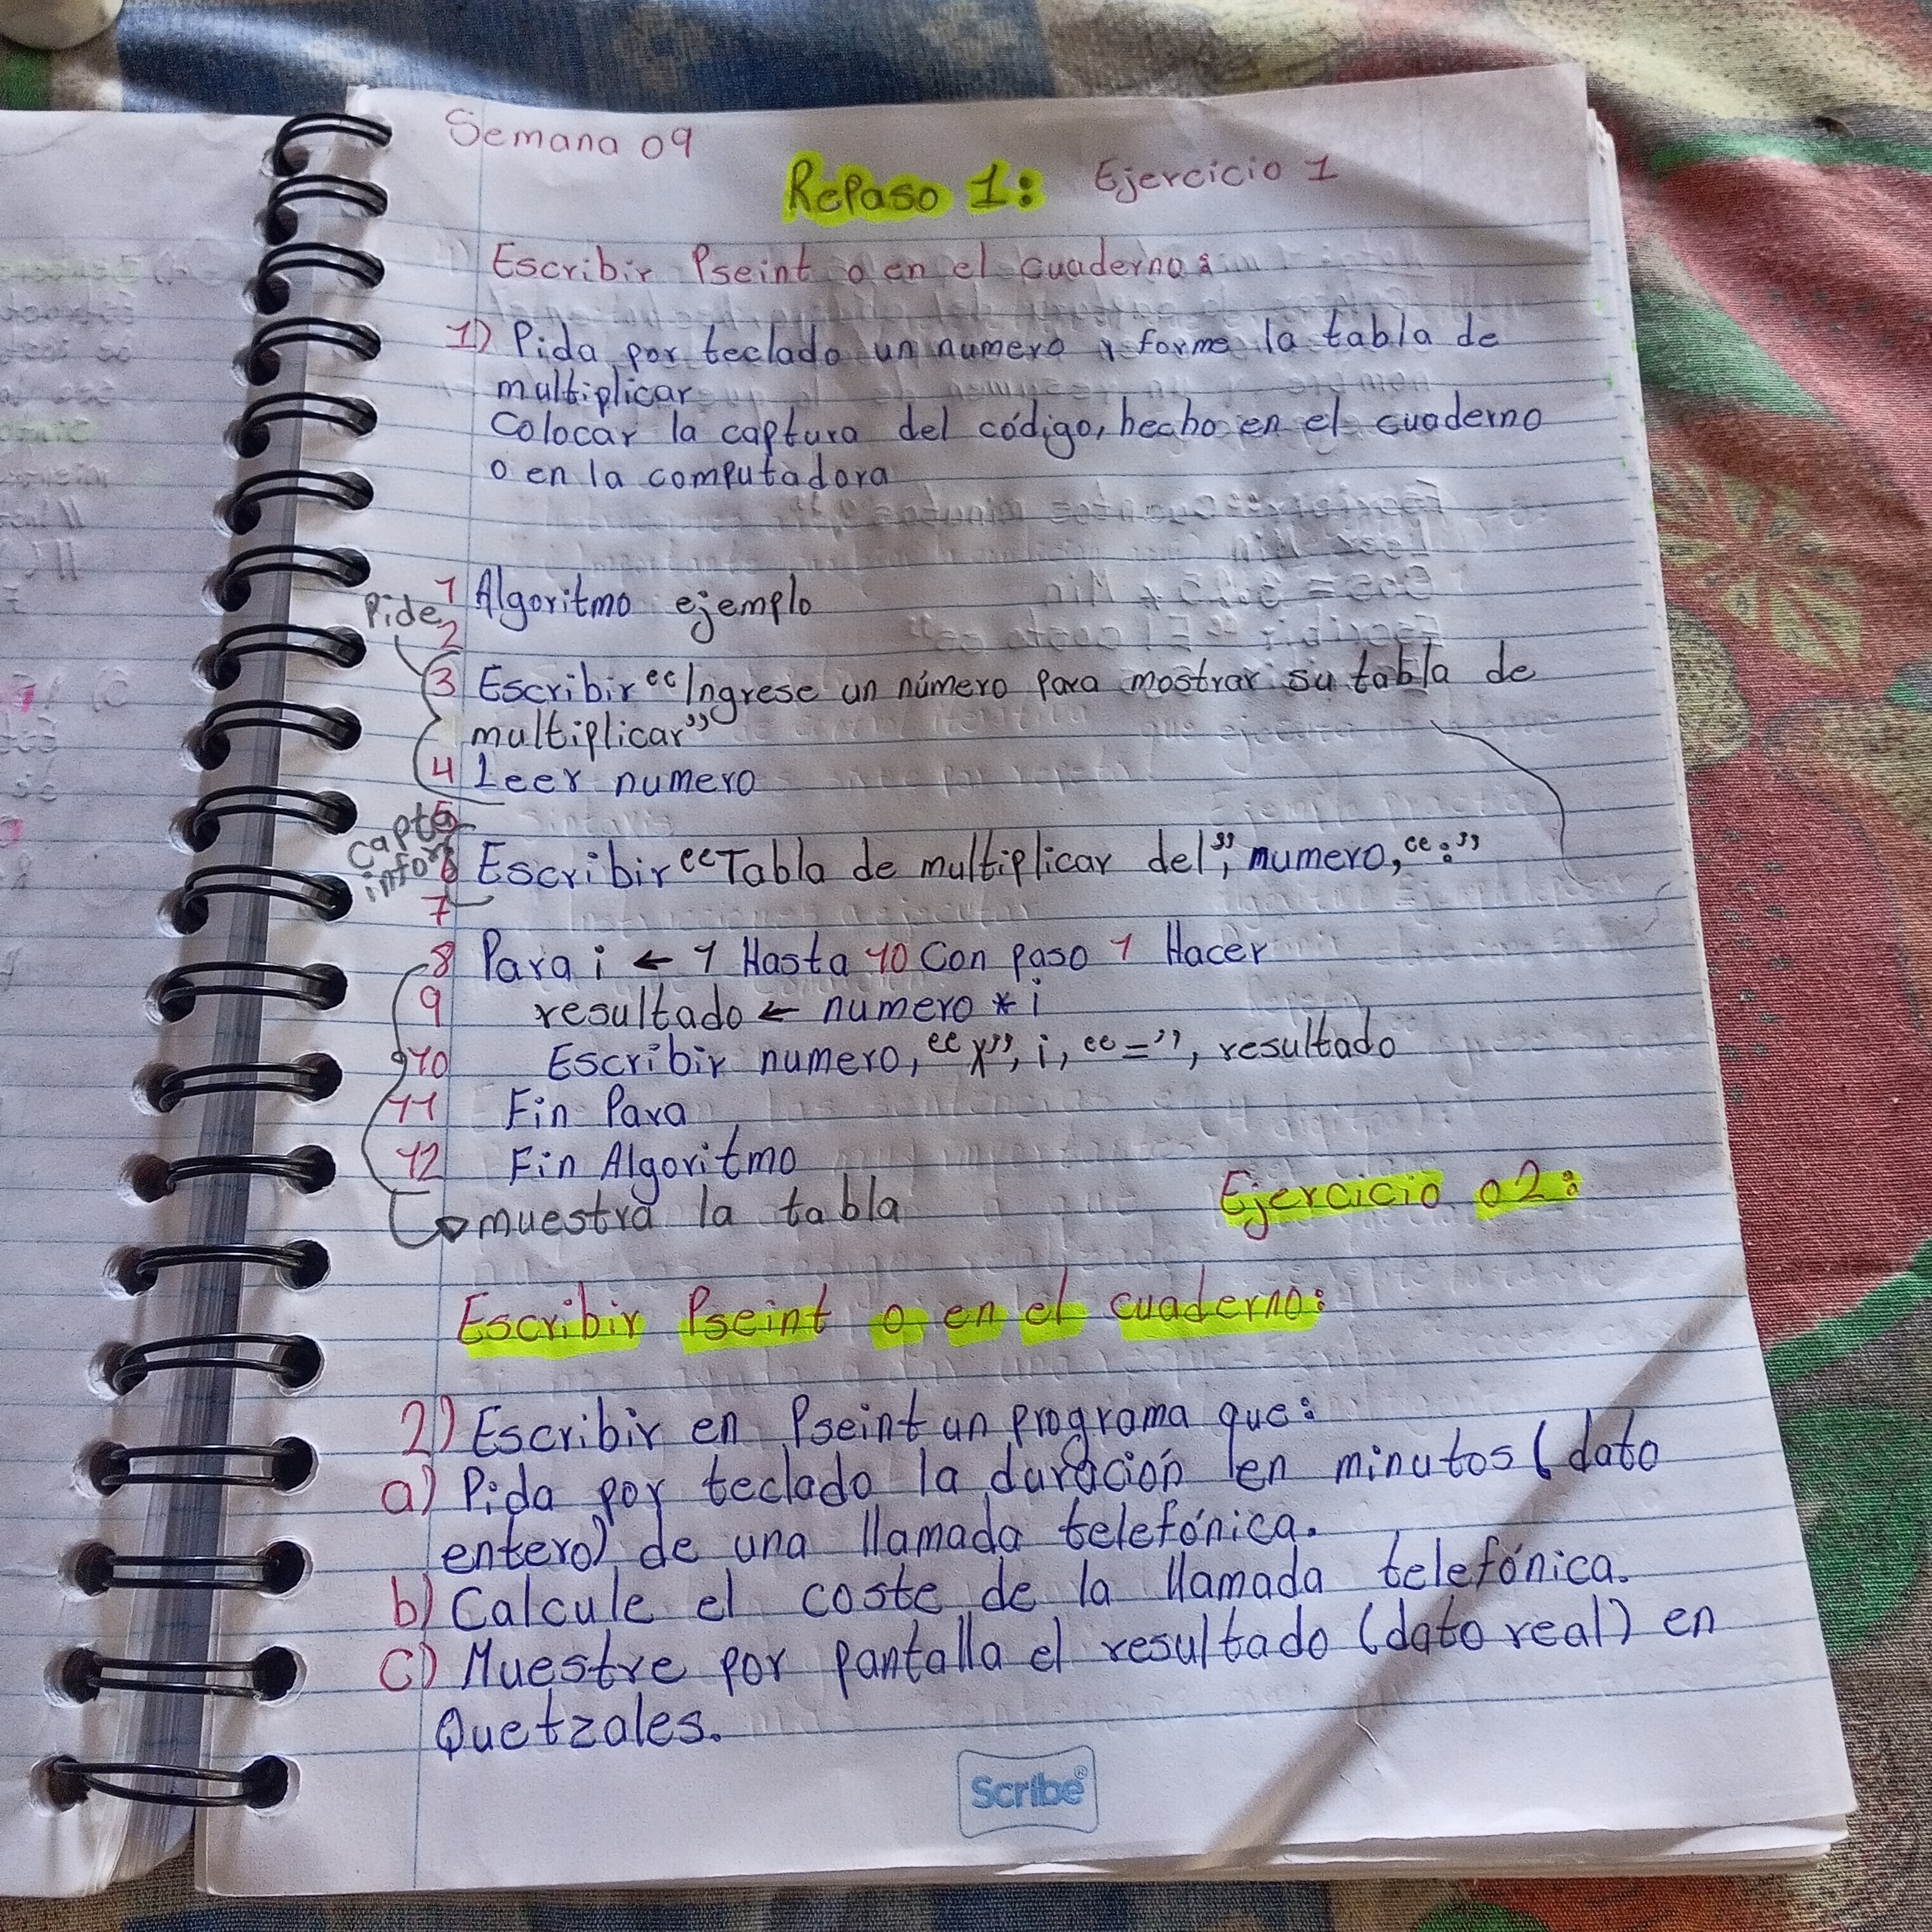 Semana 09
Repaso 1: Ejercicio 1
Escribir Pseint o en el cuaderno:
1) Pida por teclado un numero y forme la tabla de
multiplicar
Colocar la captura del código, hecho en el cuaderno
o en la computadora
1 Algoritmo ejemplo
Pide 2
3 Escribir “Ingrese un número para mostrar su tabla de
multiplicar”
4 Leer numero
5
capta
infor
6 Escribir “Tabla de multiplicar del”, numero, “:”
7
8 Para i ← 1 Hasta 10 Con paso 1 Hacer
9 resultado ← numero * i
10 Escribir numero, “x”, i, “=”, resultado
11 Fin Para
12 Fin Algoritmo
muestra la tabla
Ejercicio 02:
Escribir Pseint o en el cuaderno:
2) Escribir en Pseint un programa que:
a) Pida por teclado la duración en minutos (dato
entero) de una llamada telefónica.
b) Calcule el coste de la llamada telefónica.
c) Muestre por pantalla el resultado (dato real) en
Quetzales.
Scribe®